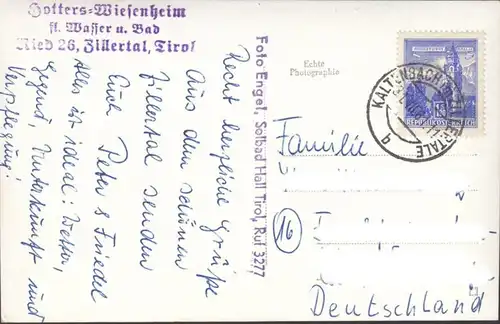 Hotters-Wiesenheim
fl. Wasser u. Bad
Ried 26, Zillertal, Tirol
Recht herzliche Grüße
Aus dem schönen
Zillertal senden
Euch Peter & Friedel
Alles ist ideal: Wetter,
Gegend, Unterkunft und
Verpflegung!
Foto Engel, Solbad Hall Tirol, Ruf 3277
Echte
Photographie
REPUBLIK ÖSTERREICH
KALTENBACH IM ZILLERTALE
b
Familie
16
Deutschland